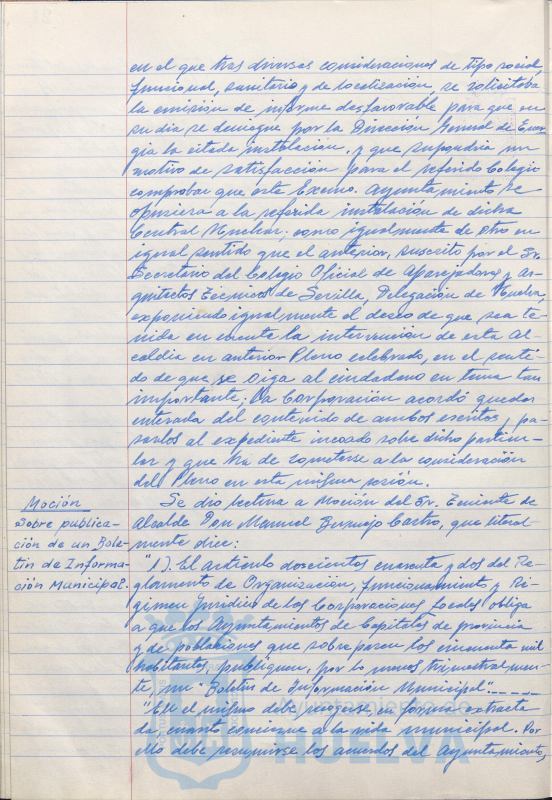 en el que tras diversas consideraciones de tipo social,
funcional, sanitario y de localización, se solicitaba
la emisión de informe desfavorable para que en
su día se deniegue por la Dirección General de Ener-
gía la citada instalación, y que supondría un
motivo de satisfacción para el referido Colegio
comprobar que éste Excmo. Ayuntamiento se
opusiera a la referida instalación de dicha
Central Nuclear; como igualmente de otro en
igual sentido que el anterior, suscrito por el Sr.
Secretario del Colegio Oficial de Aparejadores y Ar-
quitectos Técnicos de Sevilla, Delegación de Huelva,
exponiendo igualmente el deseo de que sea te-
nida en cuenta la intervención de esta Al-
caldía en anterior Pleno celebrado, en el senti-
do de que se oiga al ciudadano en tema tan
importante; La Corporación acordó quedar
enterada del contenido de ambos escritos, pa-
sarlos al expediente incoado sobre dicho particu-
lar y que ha de someterse a la consideración
del Pleno en esta misma sesión.
Moción
sobre publica-
ción de un Bole-
tín de Informa-
ción Municipal.
Se dio lectura a Moción del Sr. Teniente de
Alcalde Don Manuel Castro, que literal-
mente dice:
"1). El artículo doscientos cuarenta y dos del Re-
glamento de Organización, funcionamiento y Ré-
gimen Jurídico de las Corporaciones Locales obliga
a que los Ayuntamientos de Capitales de provincia
y de poblaciones que sobrepasen los cincuenta mil
habitantes, publiquen, por lo menos trimestralmen-
te, un "Boletín de Información Municipal".
"En el mismo debe recogerse, en forma extracta
da, cuanto concierne a la vida municipal. Por
ello debe resumirse los acuerdos del Ayuntamiento,
Ayuntamiento de
HUELVA